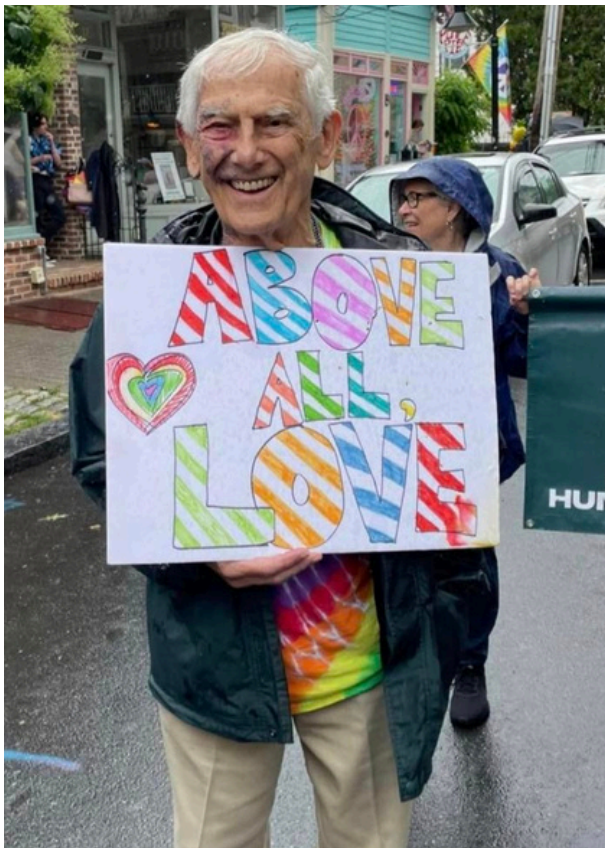 ABOVE
ALL,
LOVE
HUM